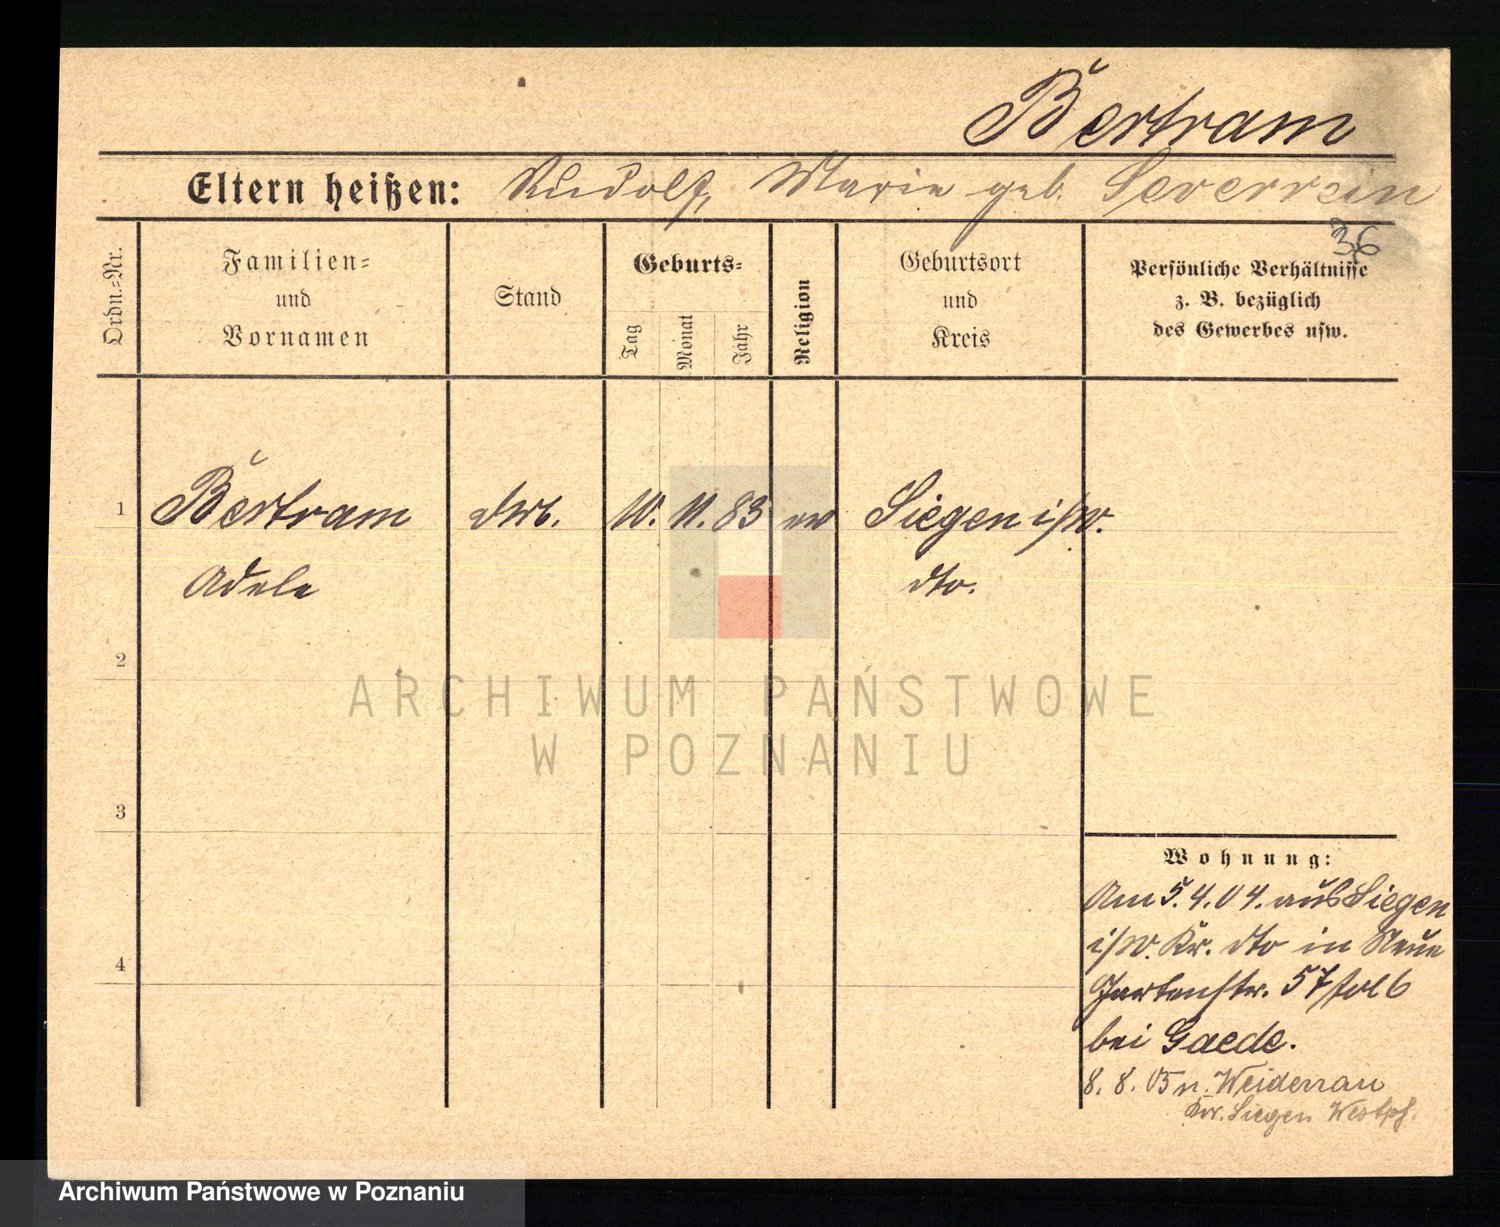 Bertram
Eltern heißen: Rudolf, Marie geb. Severrein
36
Ordn.-Nr.
Familien-
und
Vornamen
Stand
Geburts-
Tag
Monat
Jahr
Religion
Geburtsort
und
Kreis
Persönliche Verhältnisse
z. B. bezüglich
des Gewerbes usw.
1 Bertram 10. 11. 83 ev Siegen i/W.
Adele dto.
2
3
4
ARCHIWUM PAŃSTWOWE
W POZNANIU
Wohnung:
Am 5. 4. 04. aus Siegen
i/W. Kr. dto in Neue
Gartenstr. 57
bei Gaede.
8. 8. 05 n. Weidenau
Kr. Siegen Westph.
Archiwum Państwowe w Poznaniu